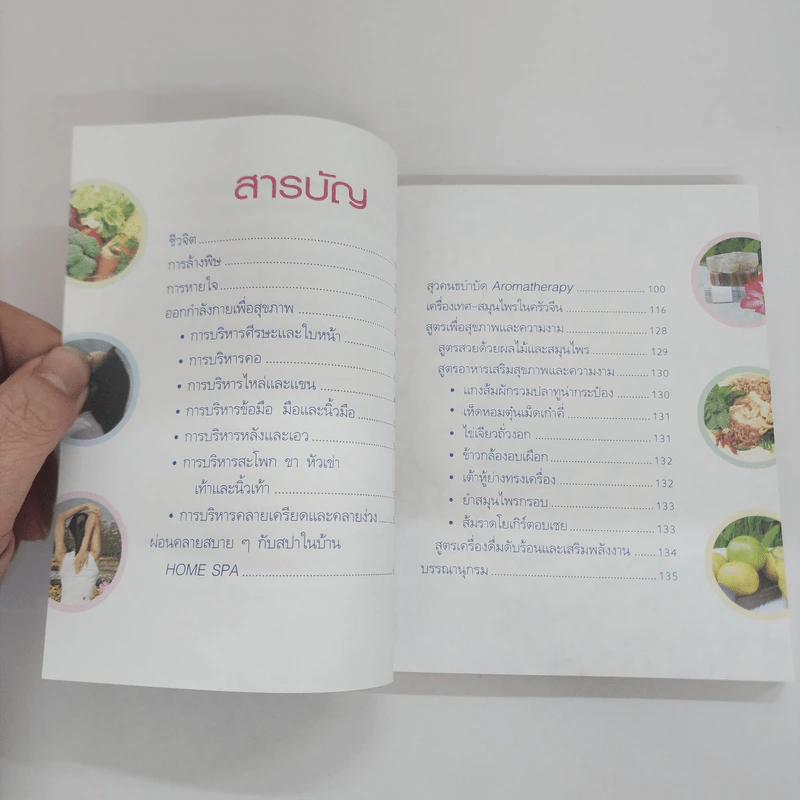 สารบัญ
ชีวจิต
การล้างพิษ
การหายใจ
ออกกำลังกายเพื่อสุขภาพ
• การบริหารศีรษะและใบหน้า
• การบริหารคอ
• การบริหารไหล่และแขน
• การบริหารข้อมือ มือและนิ้วมือ
• การบริหารหลังและเอว
• การบริหารสะโพก ขา หัวเข่า
เท้าและนิ้วเท้า
• การบริหารคลายเครียดและคลายง่วง
ผ่อนคลายสบาย ๆ กับสปาในบ้าน
HOME SPA
สุวคนธบำบัด Aromatherapy 100
เครื่องเทศ-สมุนไพรในครัวจีน 116
สูตรเพื่อสุขภาพและความงาม 128
สูตรสวยด้วยผลไม้และสมุนไพร 129
สูตรอาหารเสริมสุขภาพและความงาม 130
• แกงส้มผักรวมปลาทูน่ากระป๋อง 130
• เห็ดหอมตุ๋นเม็ดเก๋ากี้ 131
• ไข่เจียวถั่วงอก 131
• ข้าวกล้องอบเผือก 132
• เต้าหู้ย่างทรงเครื่อง 132
• ยำสมุนไพรกรอบ 133
• ส้มราดโยเกิร์ตอบเชย 133
สูตรเครื่องดื่มดับร้อนและเสริมพลังงาน 134
บรรณานุกรม 135